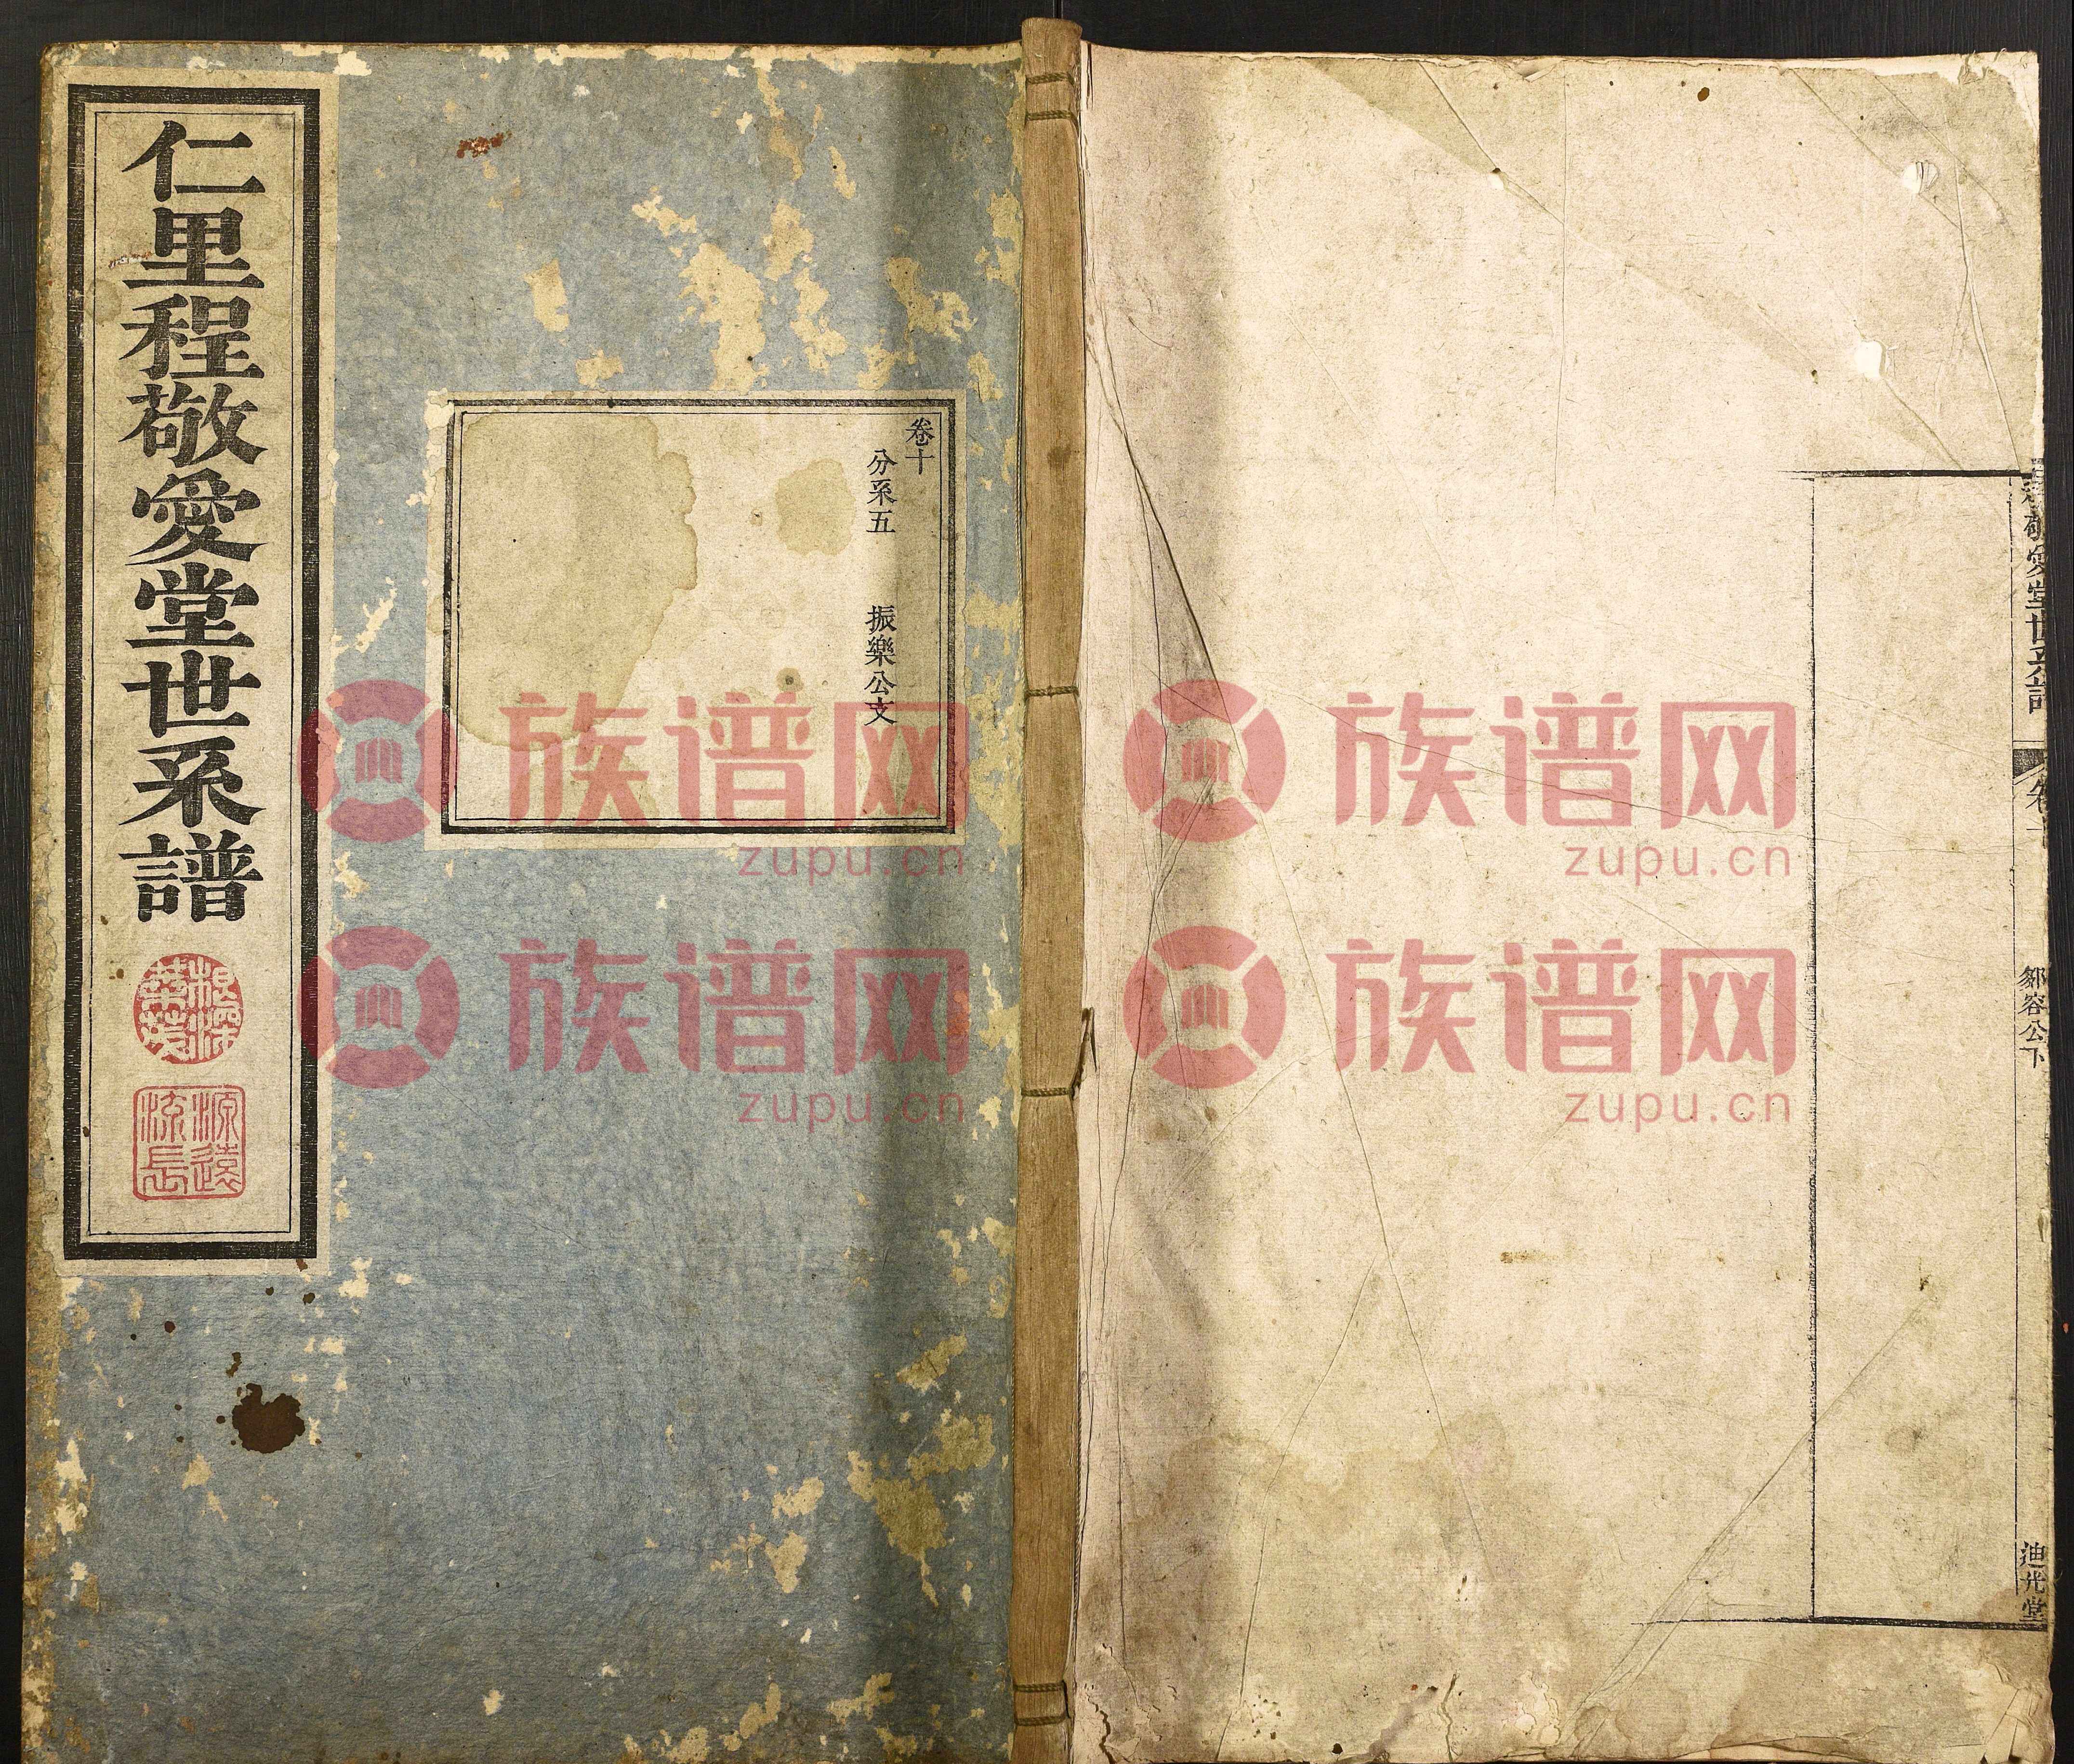 仁里程敬愛堂世系譜
根深
葉茂
源遠
流長
卷十
分系五 振樂公文
敬愛堂世系譜
卷十
鄒容公下
迪光堂
族谱网
zupu.cn
族谱网
zupu.cn
族谱网
zupu.cn
族谱网
zupu.cn